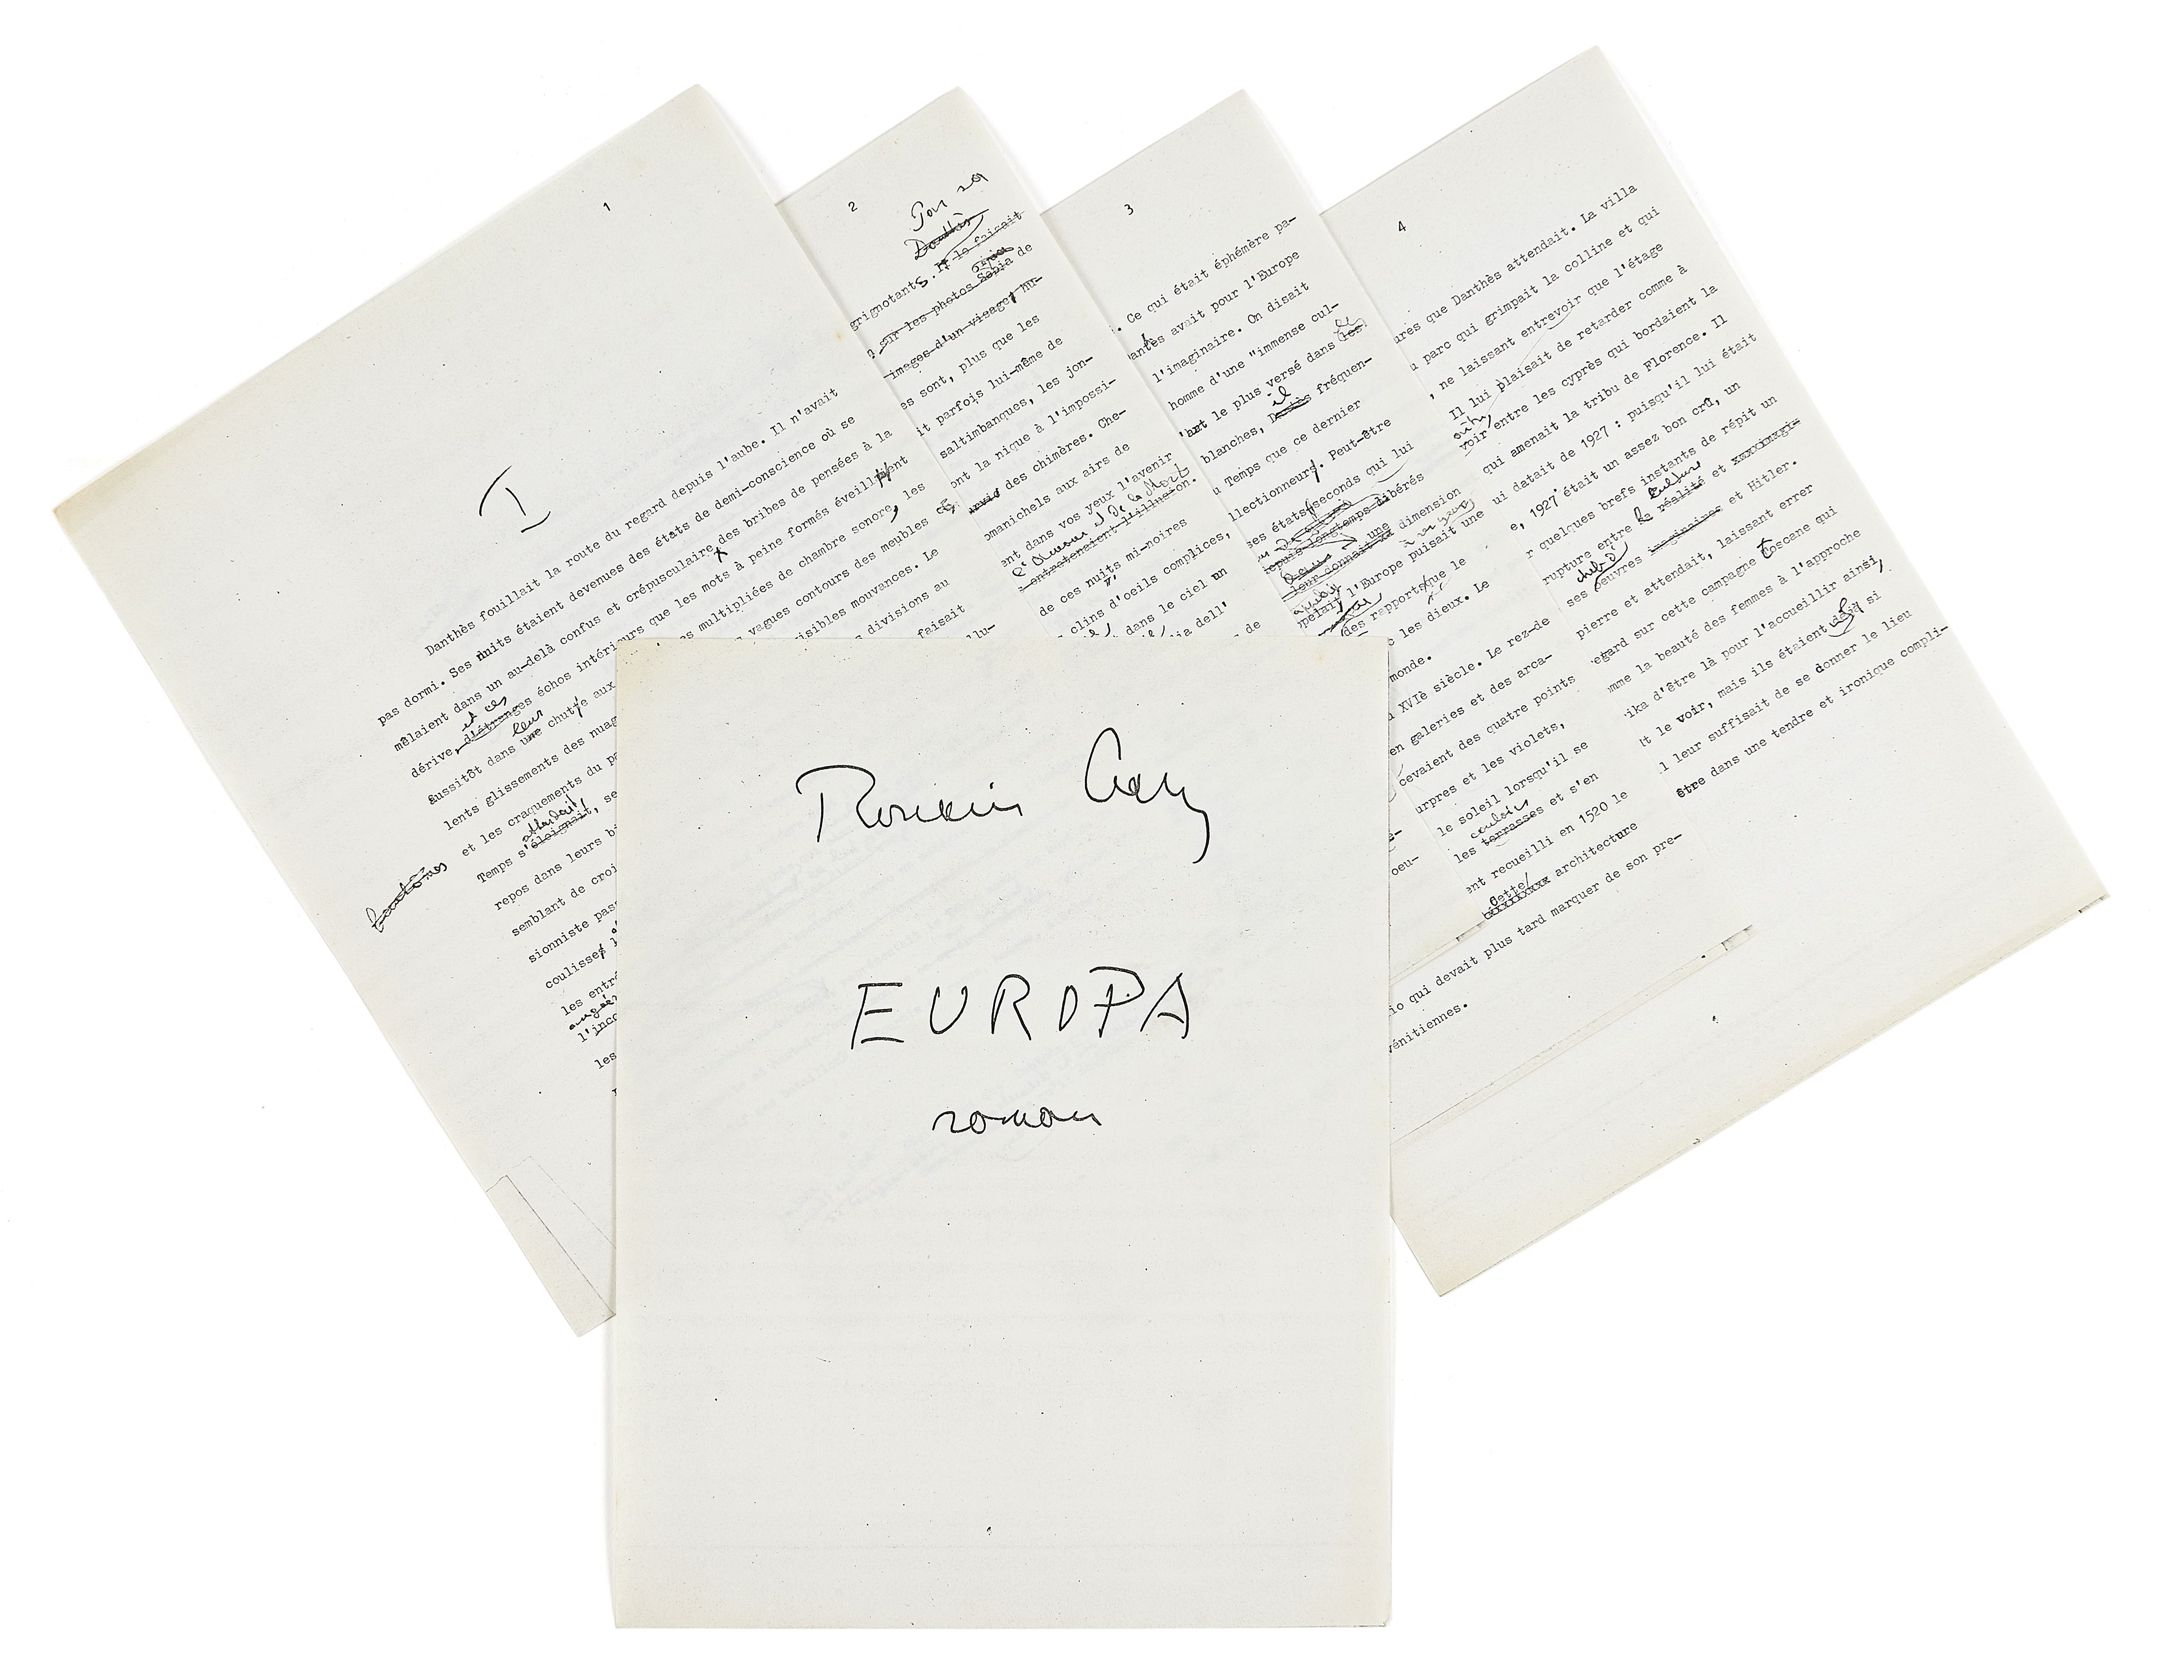 1
I
Danthès fouillait la route du regard depuis l'aube. Il n'avait
pas dormi. Ses nuits étaient devenues des états de demi-conscience où se
mêlaient dans un au-delà confus et crépusculaire des bribes de pensées à la
et ces
dérive, d'étranges échos intérieurs que les mots à peine formés éveillaient
leur
aussitôt dans une chute aux multipliées de chambre sonore, les
lents glissements des vagues contours des meubles
et les craquements du visibles mouvances. Le
attardait
Temps s'éloignait, divisions au
fantômes
repos dans leurs faisait
semblant de
sionniste
coulisses
les
les
2
Pour sa
Danthès
grignotants. Il le faisait
sépia
sur les photos Sépia de
images d'un visage,
es sont, plus que les
it parfois lui-même de
saltimbanques, les jon-
ont la nique à l'impossi-
des chimères. Che-
omanichels aux airs de
ent dans vos yeux l'avenir
l'Amour et de la Mort
entretenaient l'illusion.
de ces nuits mi-noires
clins d'oeils complices,
dans le ciel un
ia dell'
de
3
. Ce qui était éphémère pa-
antès avait pour l'Europe
l'imaginaire. On disait
homme d'une "immense cul-
le plus versé dans les
il
blanches, Danthès fréquen-
u Temps que ce dernier
llectionneurs. Peut-être
ses états seconds qui lui
depuis longtemps libérés
leur donnait une dimension
l'Europe puisait une
des rapports que le
c les dieux. Le
monde.
XVIè siècle. Le rez-de
en galeries et des arca-
cevaient des quatre points
urpres et les violets,
le soleil lorsqu'il se
couloirs
les terrasses et s'en
ent recueilli en 1520 le
Cette architecture
io qui devait plus tard marquer de son pre-
vénitiennes.
4
ures que Danthès attendait. La villa
u parc qui grimpait la colline et qui
, ne laissant entrevoir que l'étage
Il lui plaisait de retarder comme à
voir entre les cyprès qui bordaient la
qui amenait la tribu de Florence. Il
ui datait de 1927 : puisqu'il lui était
e, 1927 était un assez bon crû, un
r quelques brefs instants de répit un
culture
rupture entre la réalité et
ses oeuvres imaginaires et Hitler.
pierre et attendait, laissant errer
egard sur cette campagne toscane qui
mme la beauté des femmes à l'approche
ika d'être là pour l'accueillir ainsi,
t le voir, mais ils étaient déjà si
l leur suffisait de se donner le lieu
être dans une tendre et ironique compli-
Romain Gary
EUROPA
roman